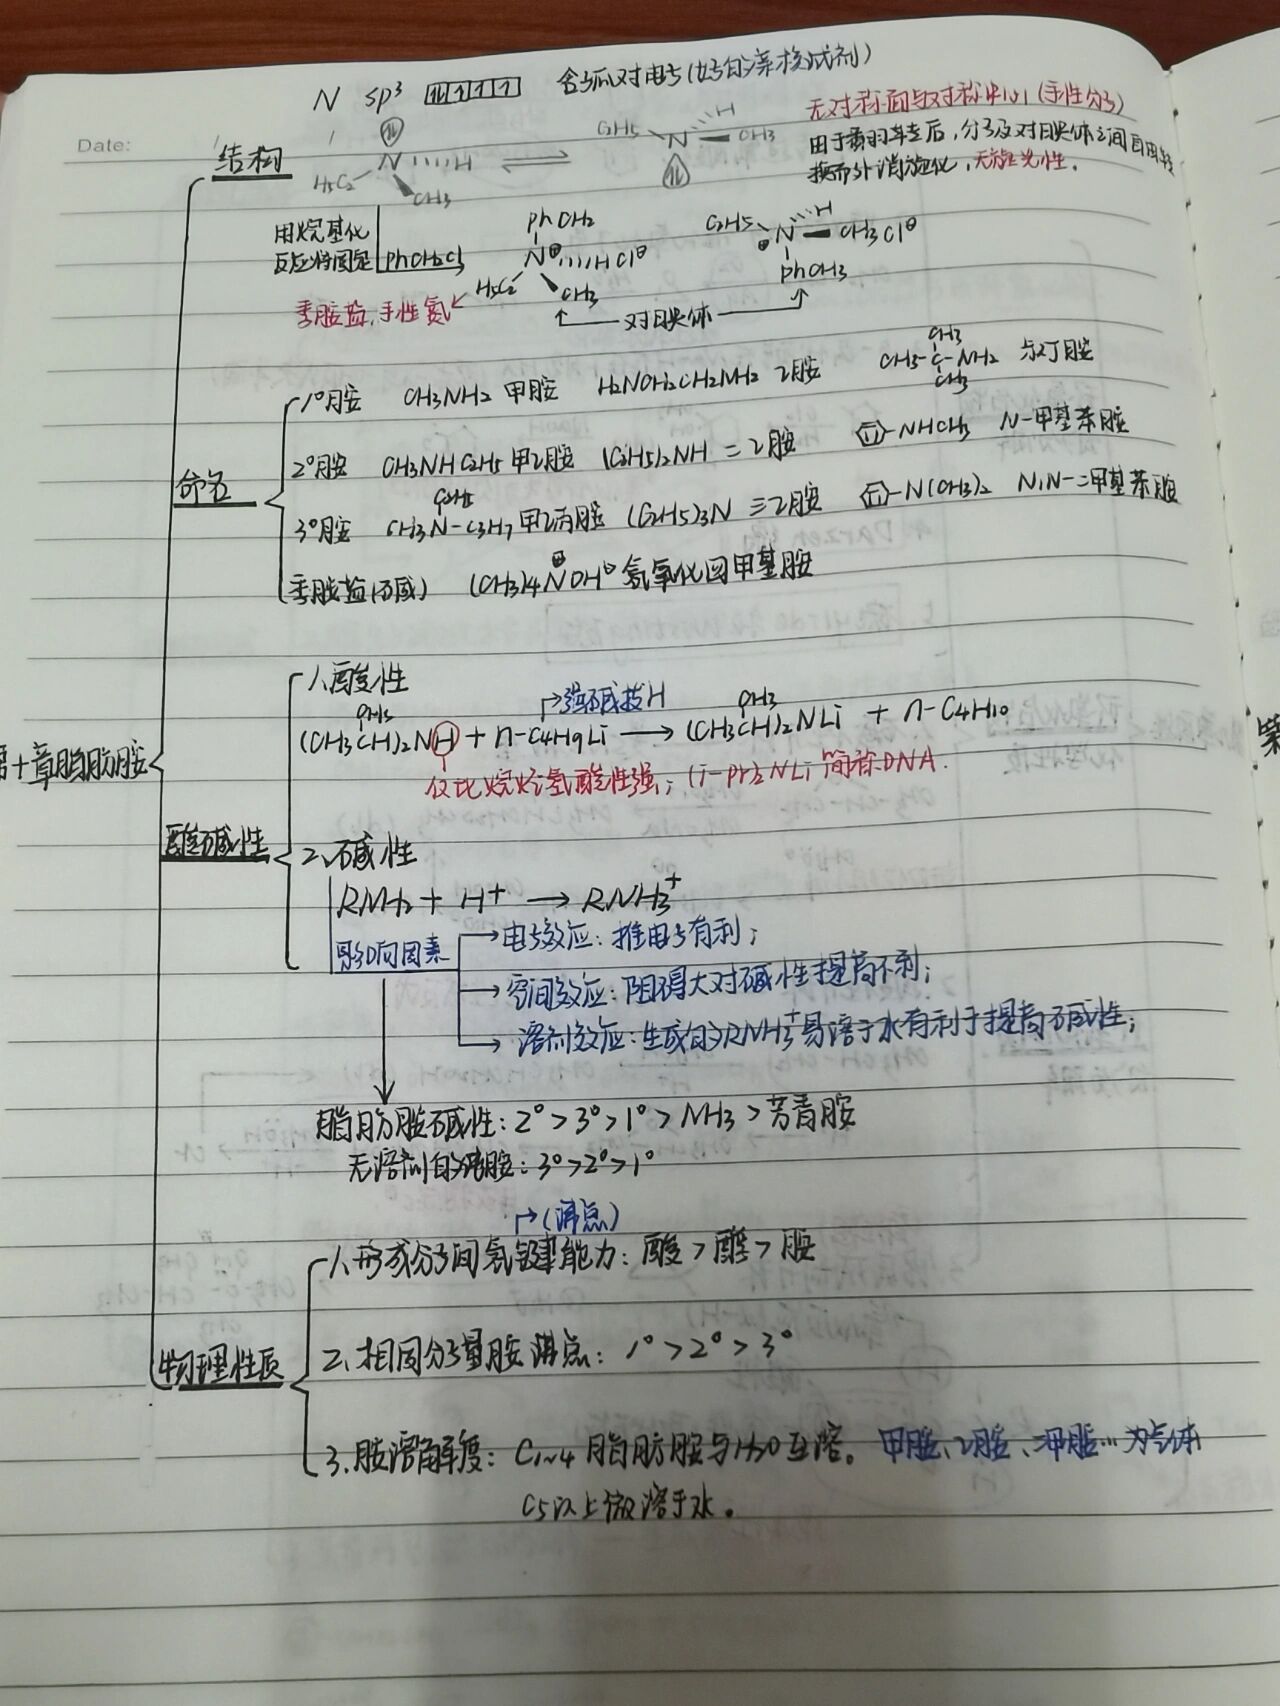 N sp³ 含孤对电子(好的亲核试剂)
Date:
结构
N H H₅C₂ CH₃ ⇌ C₂H₅ N H CH₃
无对称面与对称中心(手性分子)
由于氮翻转后,分子及对映体之间自由转
换而外消旋化,无旋光性。
用烷基化
反应将固定 PhCH₂Cl
PhCH₂ N⊕ H Cl⊖ H₅C₂ CH₃
C₂H₅ ⊕N H CH₃ Cl⊖ PhCH₃
季胺盐,手性氮
对映体
命名
1°胺 CH₃NH₂ 甲胺 H₂NCH₂CH₂NH₂ 乙胺 CH₃-C(CH₃)(CH₃)-NH₂ 叔丁胺
2°胺 CH₃NHC₂H₅ 甲乙胺 (C₂H₅)₂NH 二乙胺 -NHCH₃ N-甲基苯胺
3°胺 CH₃N(C₂H₅)-C₃H₇ 甲乙丙胺 (C₂H₅)₃N 三乙胺 -N(CH₃)₂ N,N-二甲基苯胺
季胺盐(碱) (CH₃)₄N⊕OH⊖ 氢氧化四甲基胺
第十章脂肪胺
酸碱性
1、酸性
→强碱拔H
(CH₃CH(CH₃))₂NH + n-C₄H₉Li → (CH₃CH(CH₃))₂NLi + n-C₄H₁₀
仅比烷烃氢酸性强; (i-pr)₂NLi 简称DNA.
2、碱性
RNH₂ + H⁺ → RNH₃⁺
影响因素
→电子效应:推电子有利;
→空间效应:阻碍大对碱性提高不利;
→溶剂效应:生成的RNH₃⁺易溶于水有利于提高碱性;
脂肪胺碱性:2°>3°>1°>NH₃>芳香胺
无溶剂的胺:3°>2°>1°
→(沸点)
物理性质
1、形成分子间氢键能力:酸>醇>胺
2、相同分子量胺沸点:1°>2°>3°
3.胺溶解度:C₁~₄脂肪胺与H₂O互溶。甲胺、乙胺、二甲胺…为气体
C₅以上微溶于水。
第